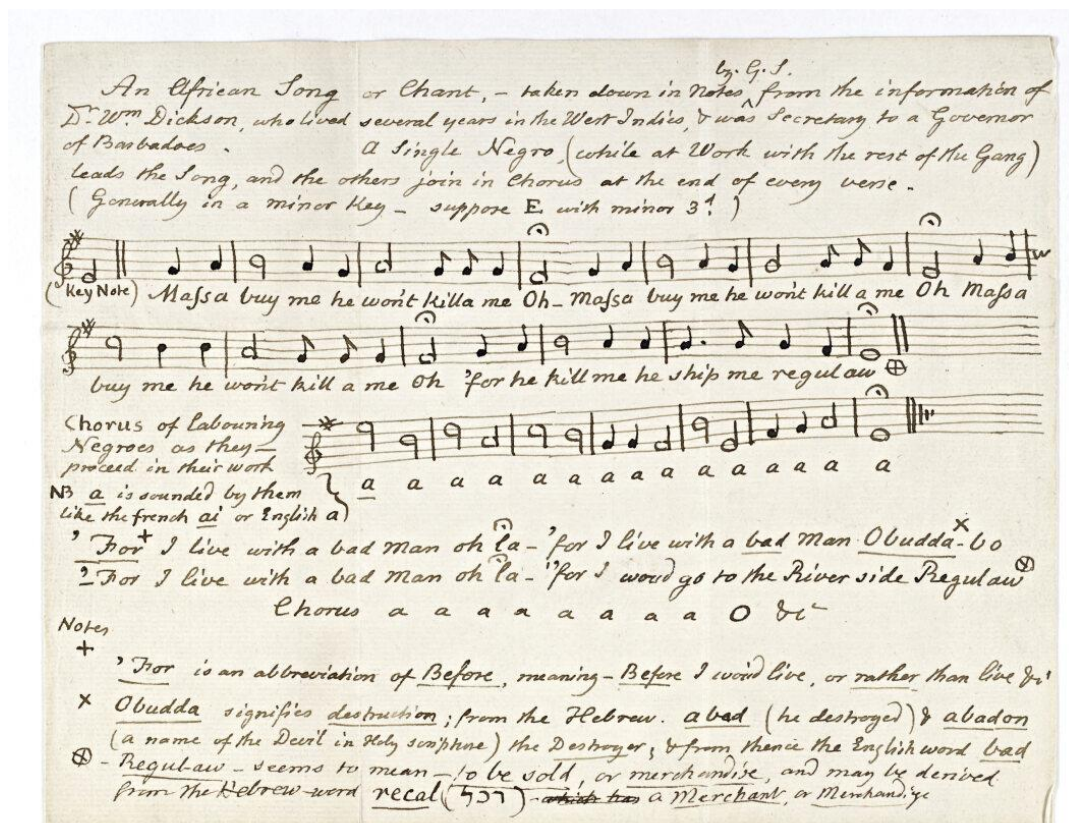 by G.S.
An African Song or Chant, – taken down in Notes ^ from the information of
Dr. Wm. Dickson, who lived several years in the West Indies, & was Secretary to a Governor
of Barbadoes. A Single Negro, (while at Work with the rest of the Gang)
leads the Song, and the others join in Chorus at the end of every verse.
(Generally in a minor Key – suppose E with minor 3d.)
(Key Note) Maſsa buy me he won't killa me Oh – Maſsa buy me he won't kill a me Oh Maſsa
buy me he won't kill a me Oh 'for he kill me he ship me regulaw ⊕
Chorus of Labouring
Negroes as they –
proceed in their work
NB a is sounded by them
like the french ai or English a)
a a a a a a a a a a a a a
'For+ I live with a bad man oh la – 'for I live with a bad Man Obuddax-bo
'For I live with a bad Man oh la – 'for I woud go to the River side Regulaw⊗
Chorus a a a a a a a a O &c
Notes
+
'For is an abbreviation of Before, meaning – Before I woud live, or rather than live &c
x Obudda signifies destruction; from the Hebrew. abad (he destroyed) & abadon
(a name of the Devil in Holy scripture) the Destroyer; & from thence the English word bad
⊗ – Regulaw – seems to mean – to be sold, or merchandise, and may be derived
from the Hebrew word recal (רכל) a Merchant, or Merchandize